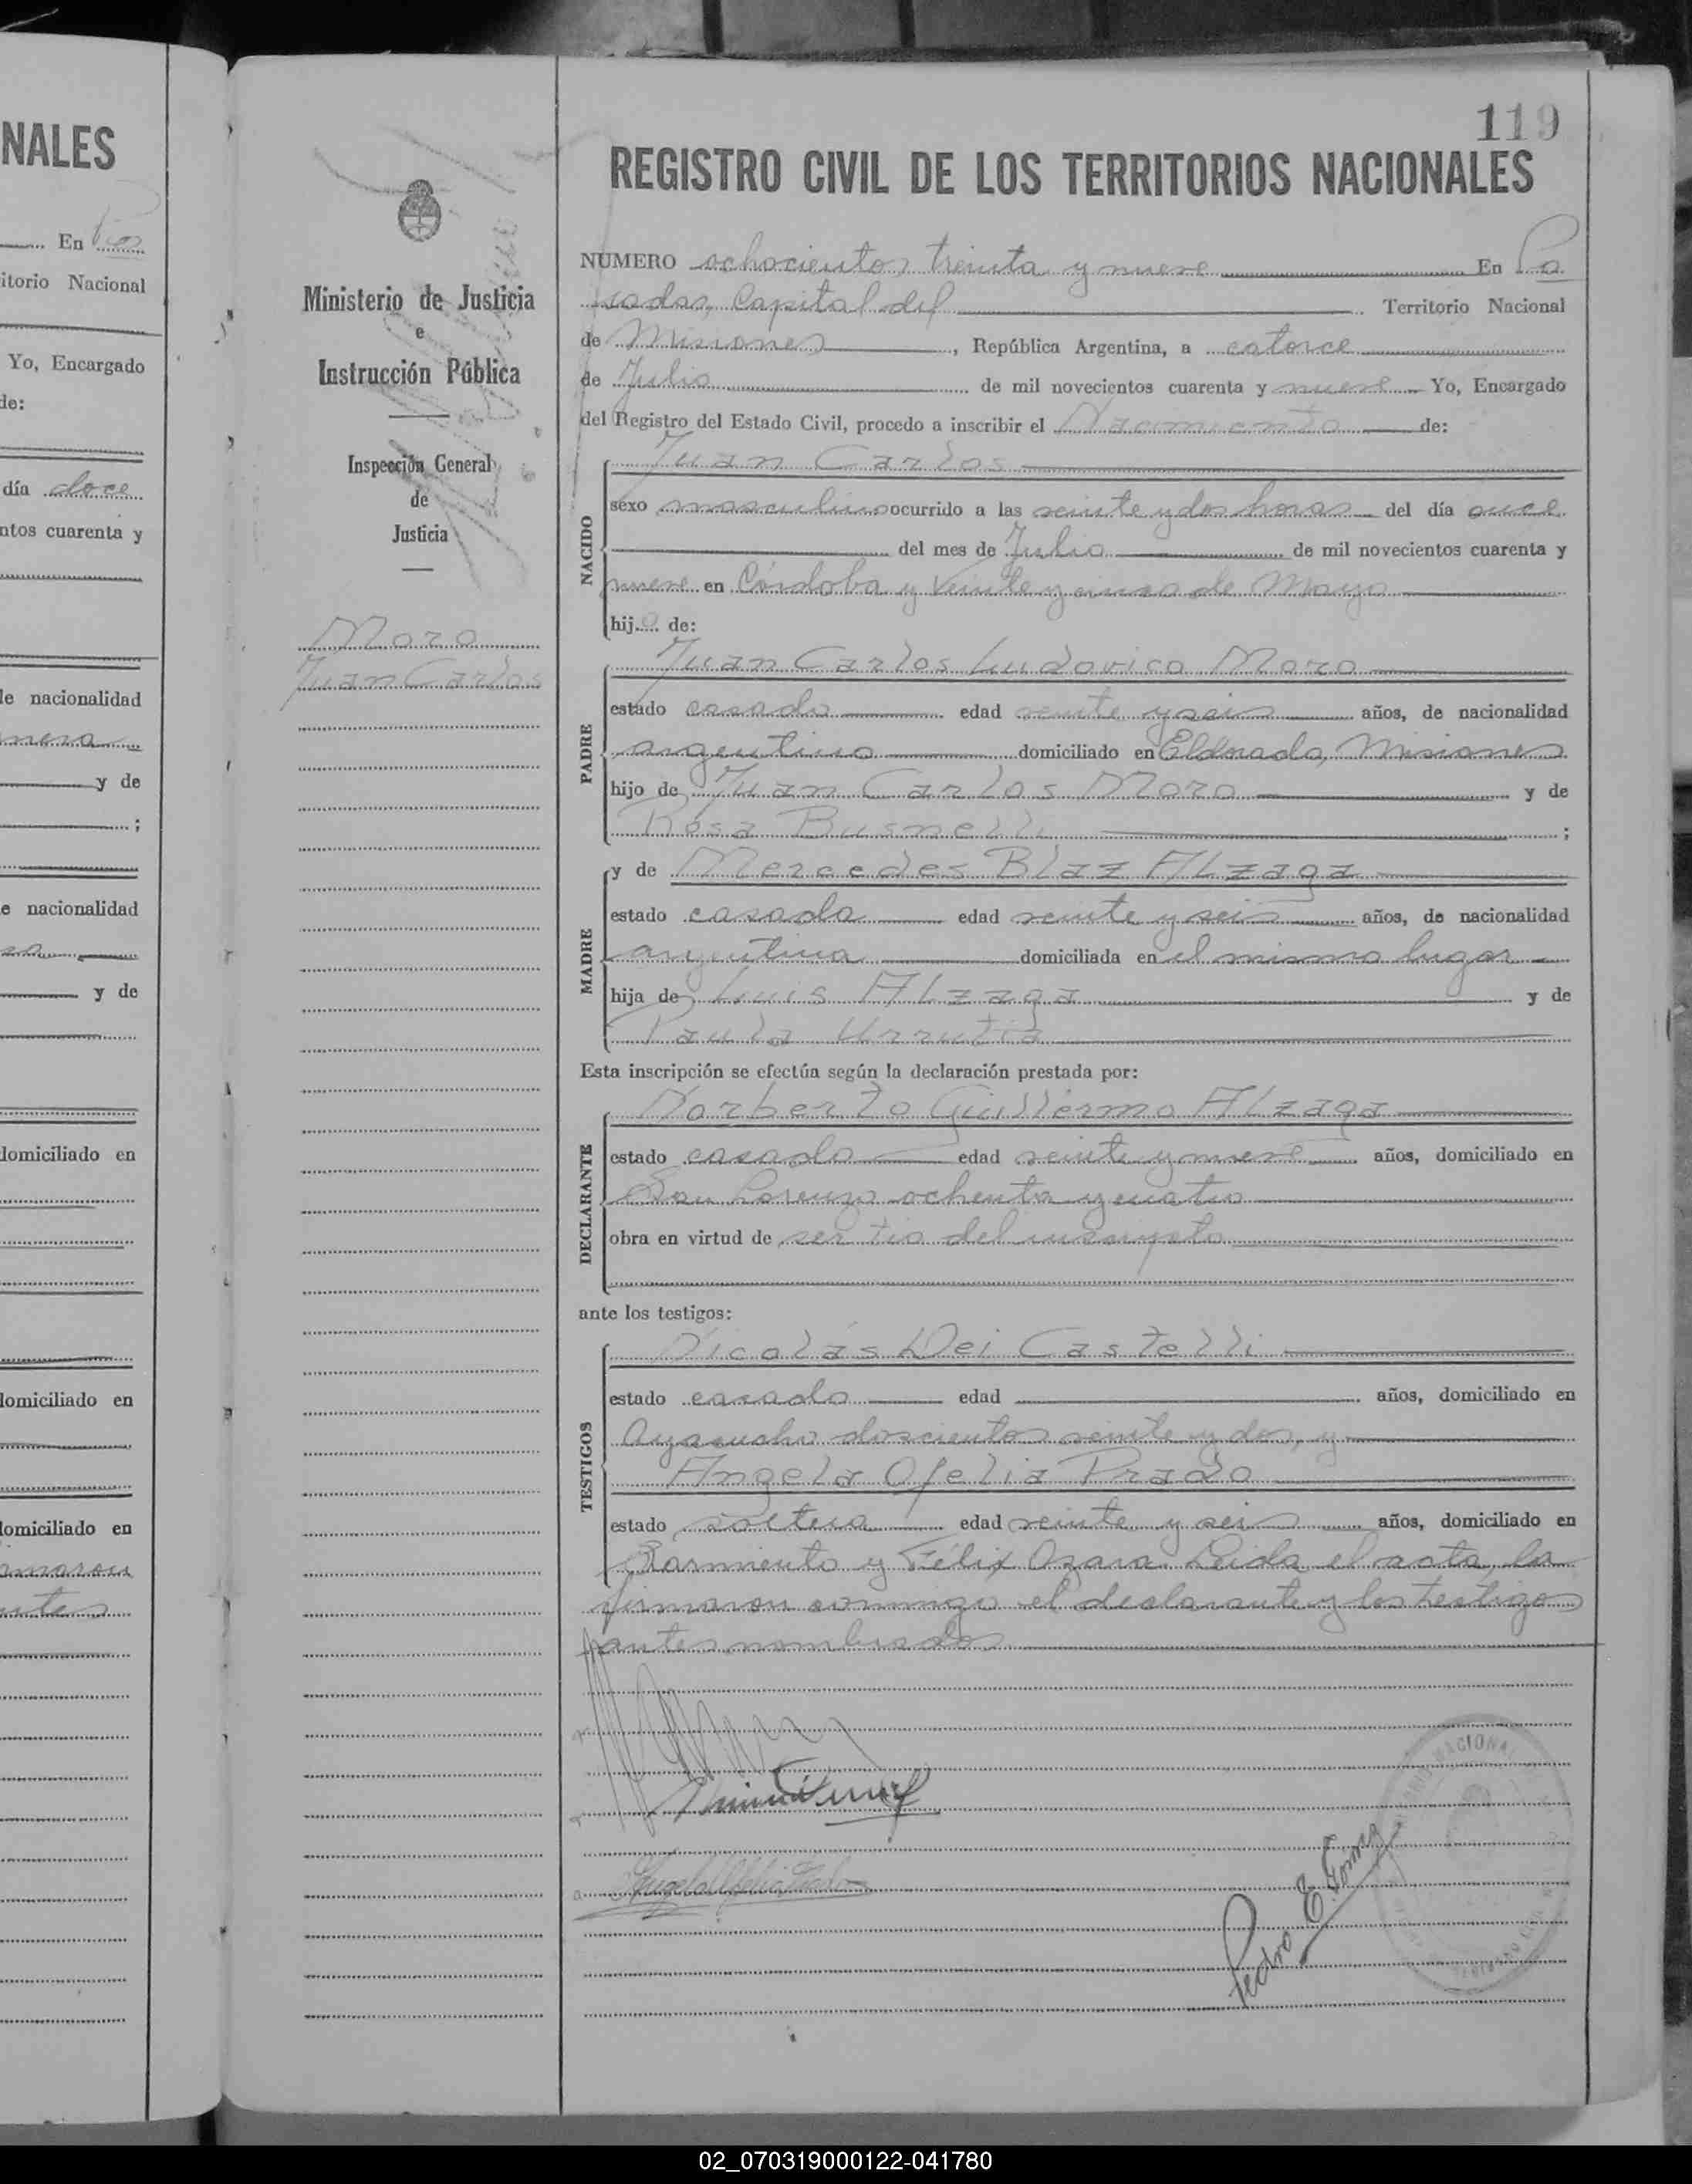 NALES
En Pos
itorio Nacional
Yo, Encargado
de:
día doce
ntos cuarenta y
de nacionalidad
y de
;
e nacionalidad
y de
domiciliado en
domiciliado en
domiciliado en
119
REGISTRO CIVIL DE LOS TERRITORIOS NACIONALES
Ministerio de Justicia
e
Instrucción Pública
Inspección General
de
Justicia
Moro
Juan Carlos
NUMERO ochocientos treinta y nueve En Po
sadas, Capital del Territorio Nacional
de Misiones, República Argentina, a catorce
de Julio de mil novecientos cuarenta y nueve Yo, Encargado
del Registro del Estado Civil, procedo a inscribir el Nacimiento de:
NACIDO
Juan Carlos
sexo masculino ocurrido a las veinte y dos horas del día once
del mes de Julio de mil novecientos cuarenta y
nueve en Córdoba y Veinte y cinco de Mayo
hijo de:
PADRE
Juan Carlos Ludovico Moro
estado casado edad veinte y seis años, de nacionalidad
argentino domiciliado en Eldorado, Misiones
hijo de Juan Carlos Moro y de
Rosa Busnelli ;
MADRE
y de Mercedes Blaz Alzaga
estado casada edad veinte y seis años, de nacionalidad
argentina domiciliada en el mismo lugar
hija de Luis Alzaga y de
Paula Urrutia
Esta inscripción se efectúa según la declaración prestada por:
DECLARANTE
Norberto Guillermo Alzaga
estado casado edad veinte y nueve años, domiciliado en
San Lorenzo ochenta y cuatro
obra en virtud de ser tio del inscripto
ante los testigos:
TESTIGOS
Nicolás Dei Castelli
estado casado edad años, domiciliado en
Ayacucho doscientos veinte y dos, y
Angela Ofelia Prado
estado soltera edad veinte y seis años, domiciliado en
Sarmiento y Félix Azara. Leida el acta, la
firmaron conmigo el declarante y los testigos
antes nombrados
Angela Ofelia Prado
Pedro E.
02_070319000122-041780